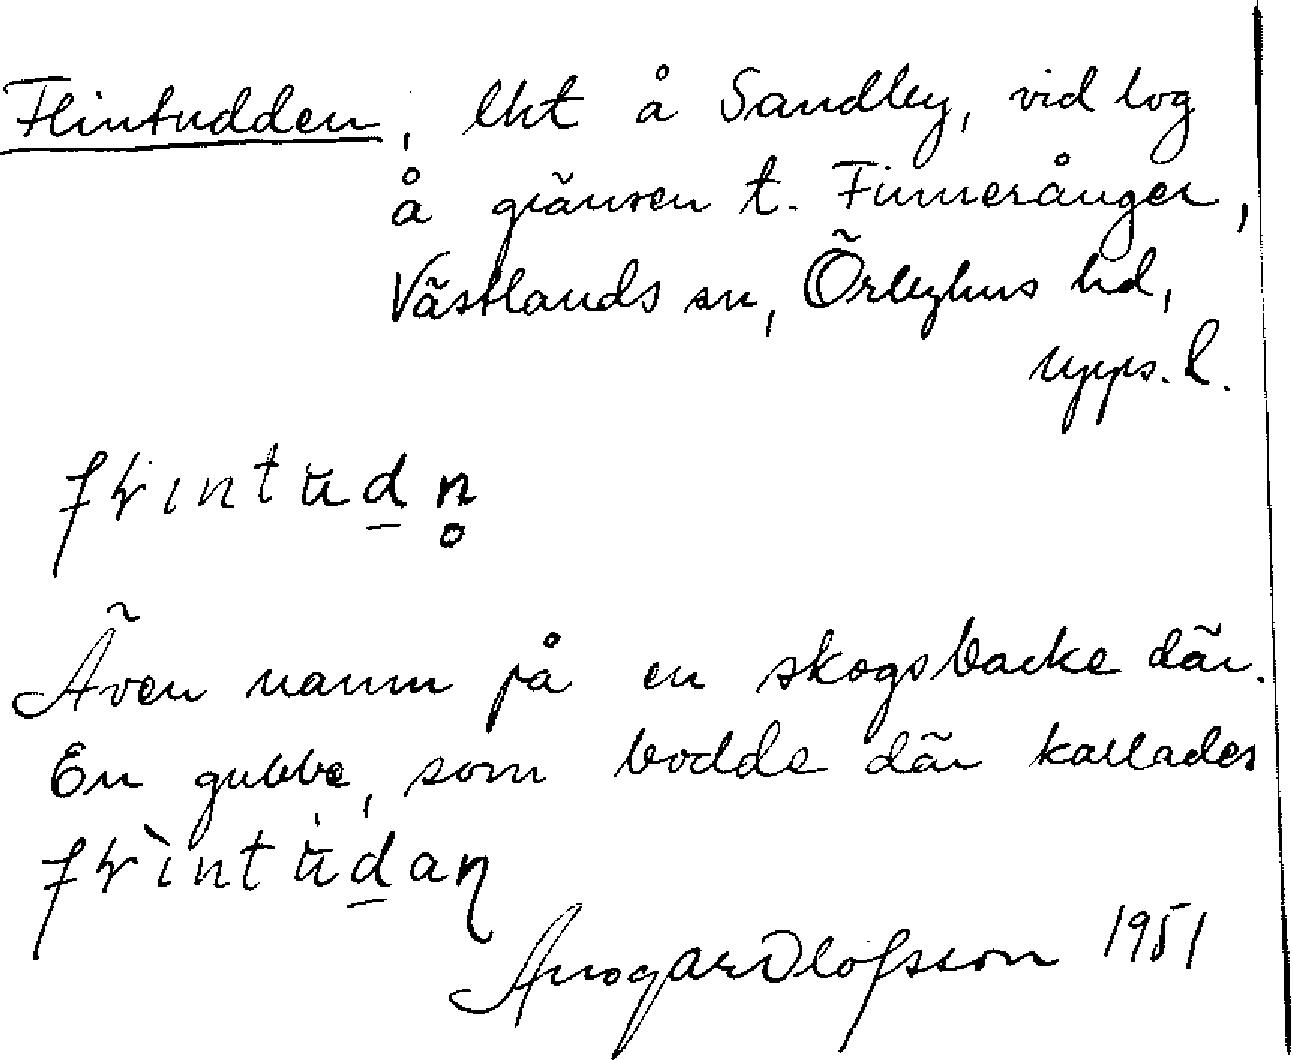 Flintudden, lkt å Sandby, vid log
å gränsen t. Finnerånger,
Västlands sn, Örbyhus hd,
Upps. l.
Även namn på en skogsbacke där.
En gubbe, som bodde där kallades
Ansgar Olofsson 1951